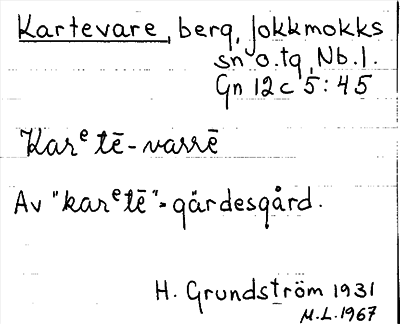 Kartevare, berg, Jokkmokks
sn o. tg, Nb. l.
Gn 12c 5:45
Karᵉtē-varrē
Av "karᵉtē" = gärdesgård.
H. Grundström 1931
M.L. 1967